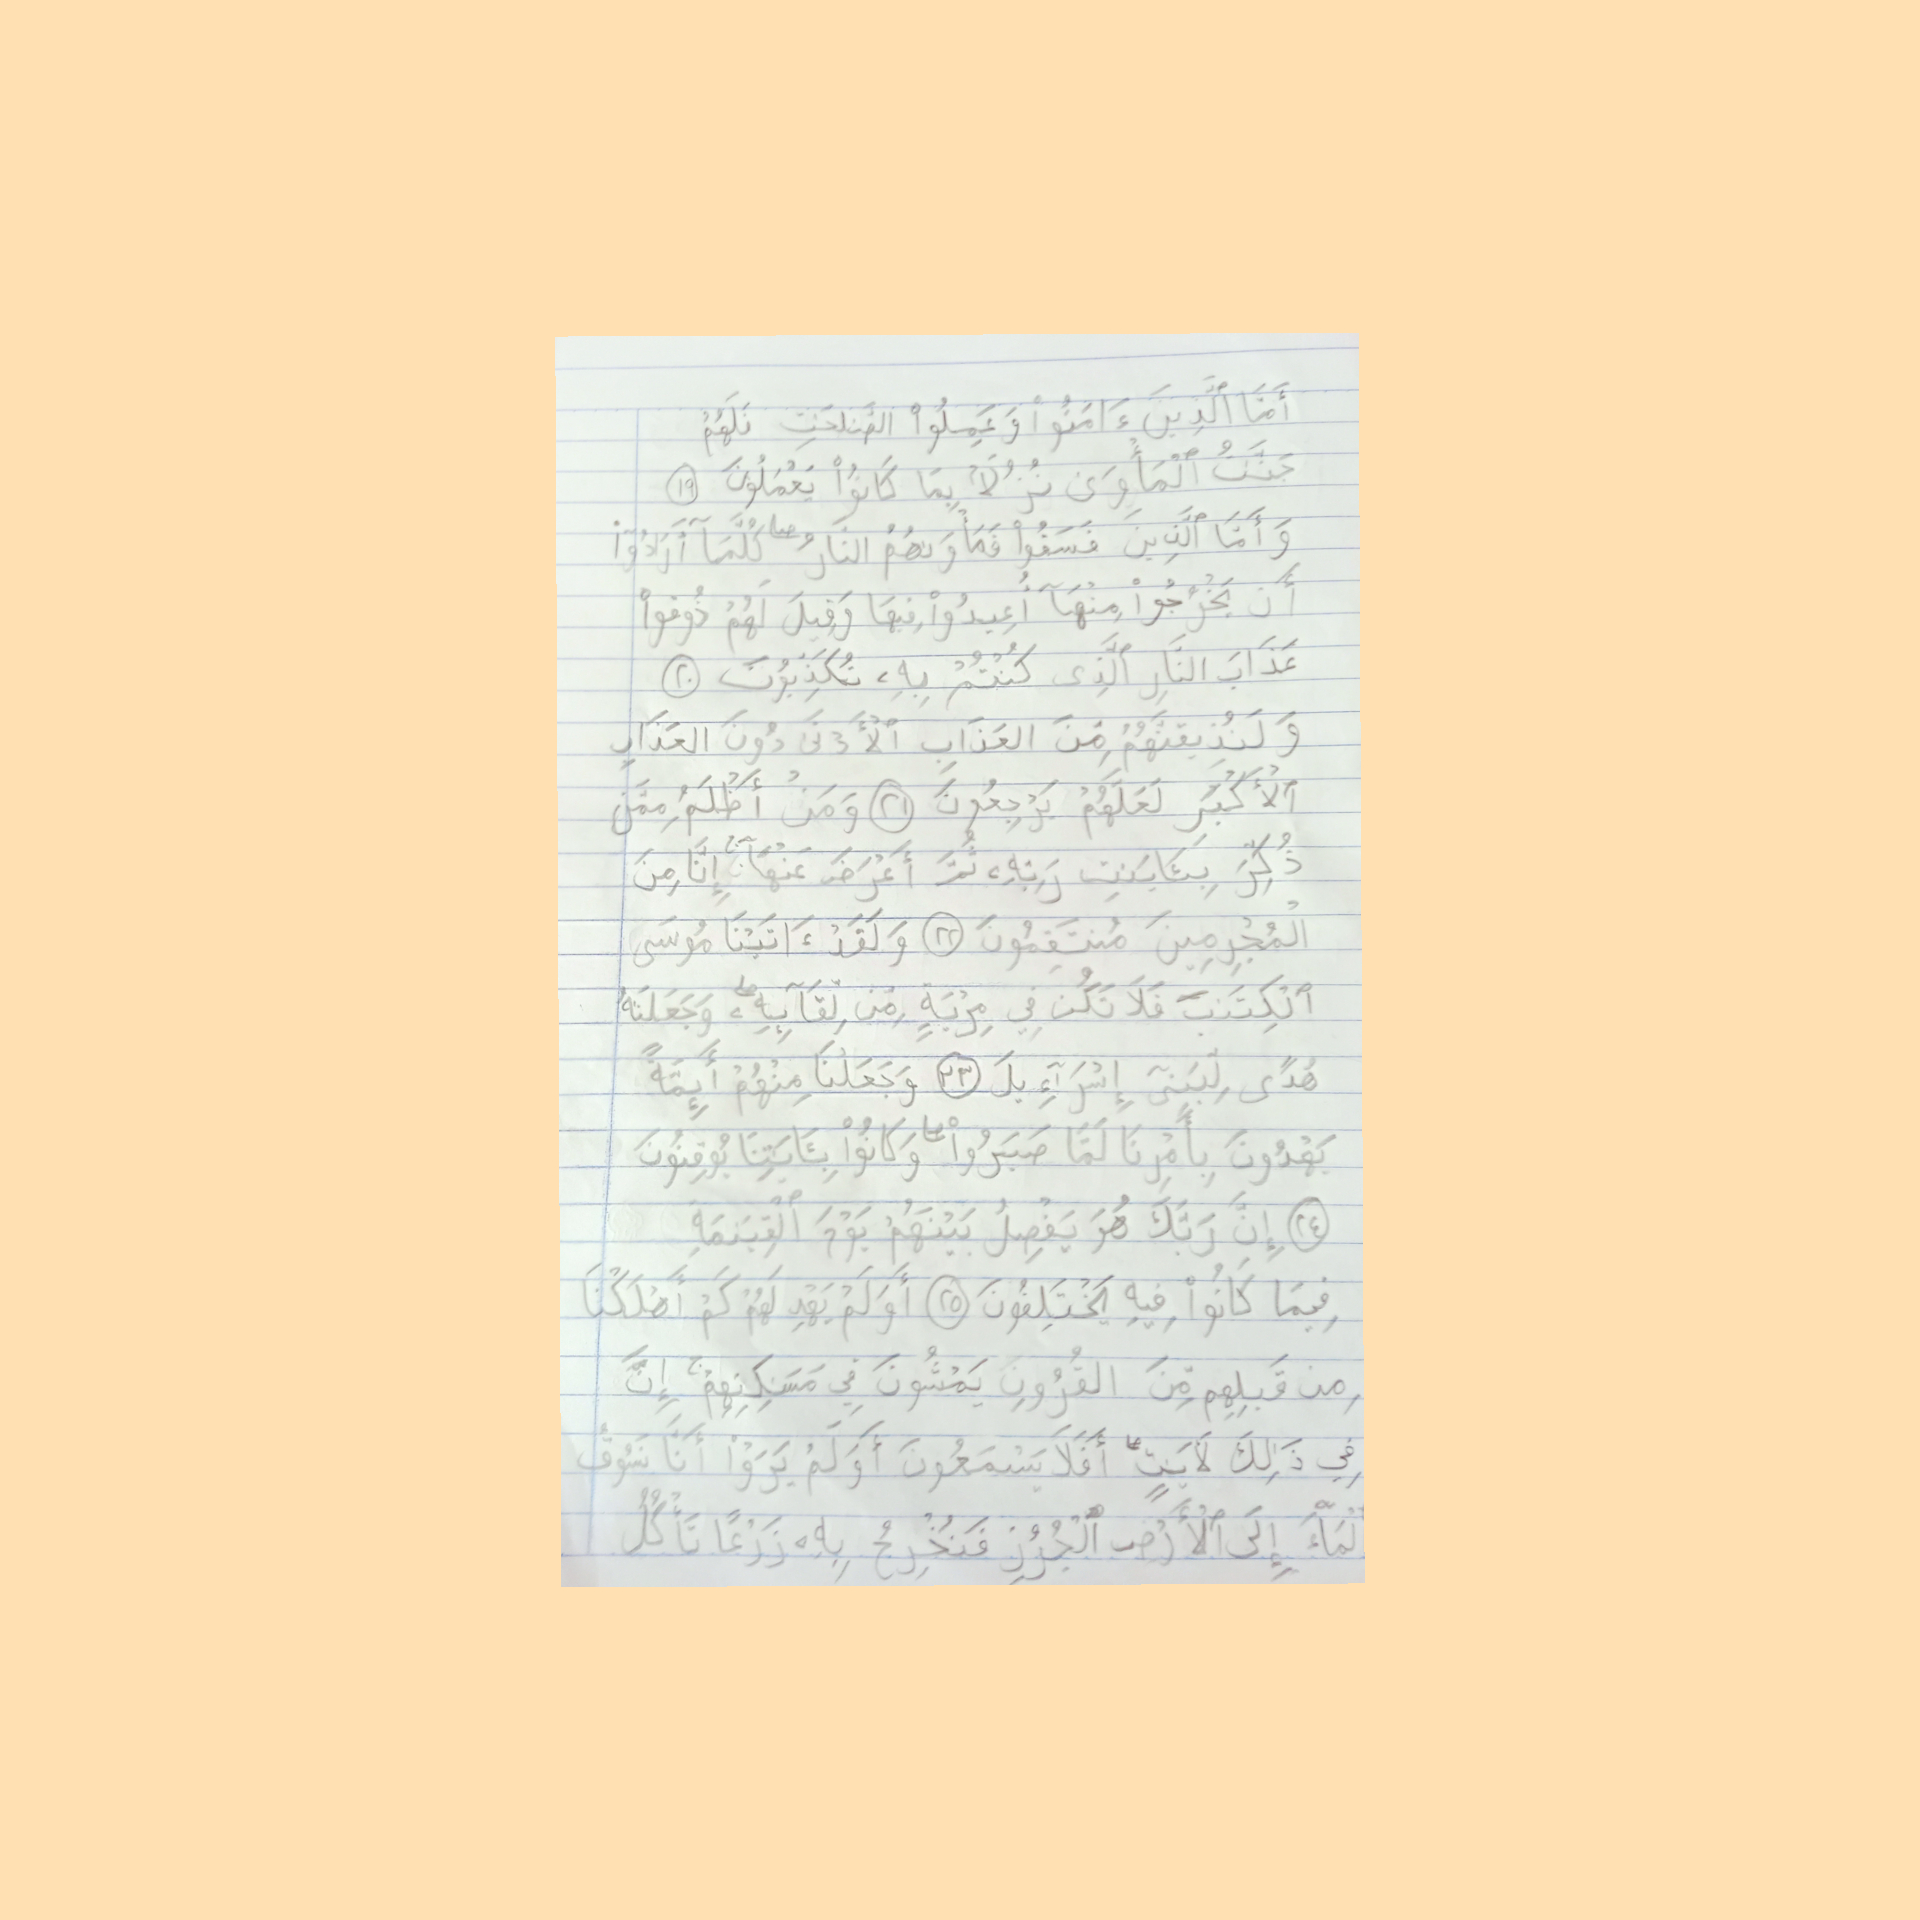 أَمَّا ٱلَّذِينَ ءَامَنُوا۟ وَعَمِلُوا۟ الصَّٰلِحَٰتِ فَلَهُمْ
جَنَّٰتُ ٱلْمَأْوَىٰ نُزُلًۢا بِمَا كَانُوا۟ يَعْمَلُونَ ١٩
وَأَمَّا ٱلَّذِينَ فَسَقُوا۟ فَمَأْوَىٰهُمُ النَّارُ ۖ كُلَّمَآ أَرَادُوٓا۟
أَن يَخْرُجُوا۟ مِنْهَآ أُعِيدُوا۟ فِيهَا وَقِيلَ لَهُمْ ذُوقُوا۟
عَذَابَ النَّارِ ٱلَّذِى كُنْتُمْ بِهِۦ تُكَذِّبُونَ ٢٠
وَلَنُذِيقَنَّهُمْ مِّنَ العَذَابِ ٱلْأَدْنَىٰ دُونَ العَذَابِ
ٱلْأَكْبَرِ لَعَلَّهُمْ يَرْجِعُونَ ٢١ وَمَنْ أَظْلَمُ مِمَّن
ذُكِّرَ بِـَٔايَٰتِ رَبِّهِۦ ثُمَّ أَعْرَضَ عَنْهَآ ۚ إِنَّا مِنَ
الْمُجْرِمِينَ مُنتَقِمُونَ ٢٢ وَلَقَدْ ءَاتَيْنَا مُوسَى
ٱلْكِتَٰبَ فَلَا تَكُن فِي مِرْيَةٍ مِّن لِّقَآئِهِۦ ۖ وَجَعَلْنَٰهُ
هُدًى لِّبَنِىٓ إِسْرَآءِيلَ ٢٣ وَجَعَلْنَا مِنْهُمْ أَئِمَّةً
يَهْدُونَ بِأَمْرِنَا لَمَّا صَبَرُوا۟ ۖ وَكَانُوا۟ بِـَٔايَٰتِنَا يُوقِنُونَ
٢٤ إِنَّ رَبَّكَ هُوَ يَفْصِلُ بَيْنَهُمْ يَوْمَ ٱلْقِيَٰمَةِ
فِيمَا كَانُوا۟ فِيهِ يَخْتَلِفُونَ ٢٥ أَوَلَمْ يَهْدِ لَهُمْ كَمْ أَهْلَكْنَا
مِن قَبْلِهِم مِّنَ القُرُونِ يَمْشُونَ فِي مَسَٰكِنِهِمْ ۚ إِنَّ
فِي ذَٰلِكَ لَأَيَٰتٍ ۖ أَفَلَا يَسْمَعُونَ أَوَلَمْ يَرَوْا۟ أَنَّا نَسُوقُ
ٱلْمَآءَ إِلَى ٱلْأَرْضِ ٱلْجُرُزِ فَنُخْرِجُ بِهِۦ زَرْعًا تَأْكُلُ